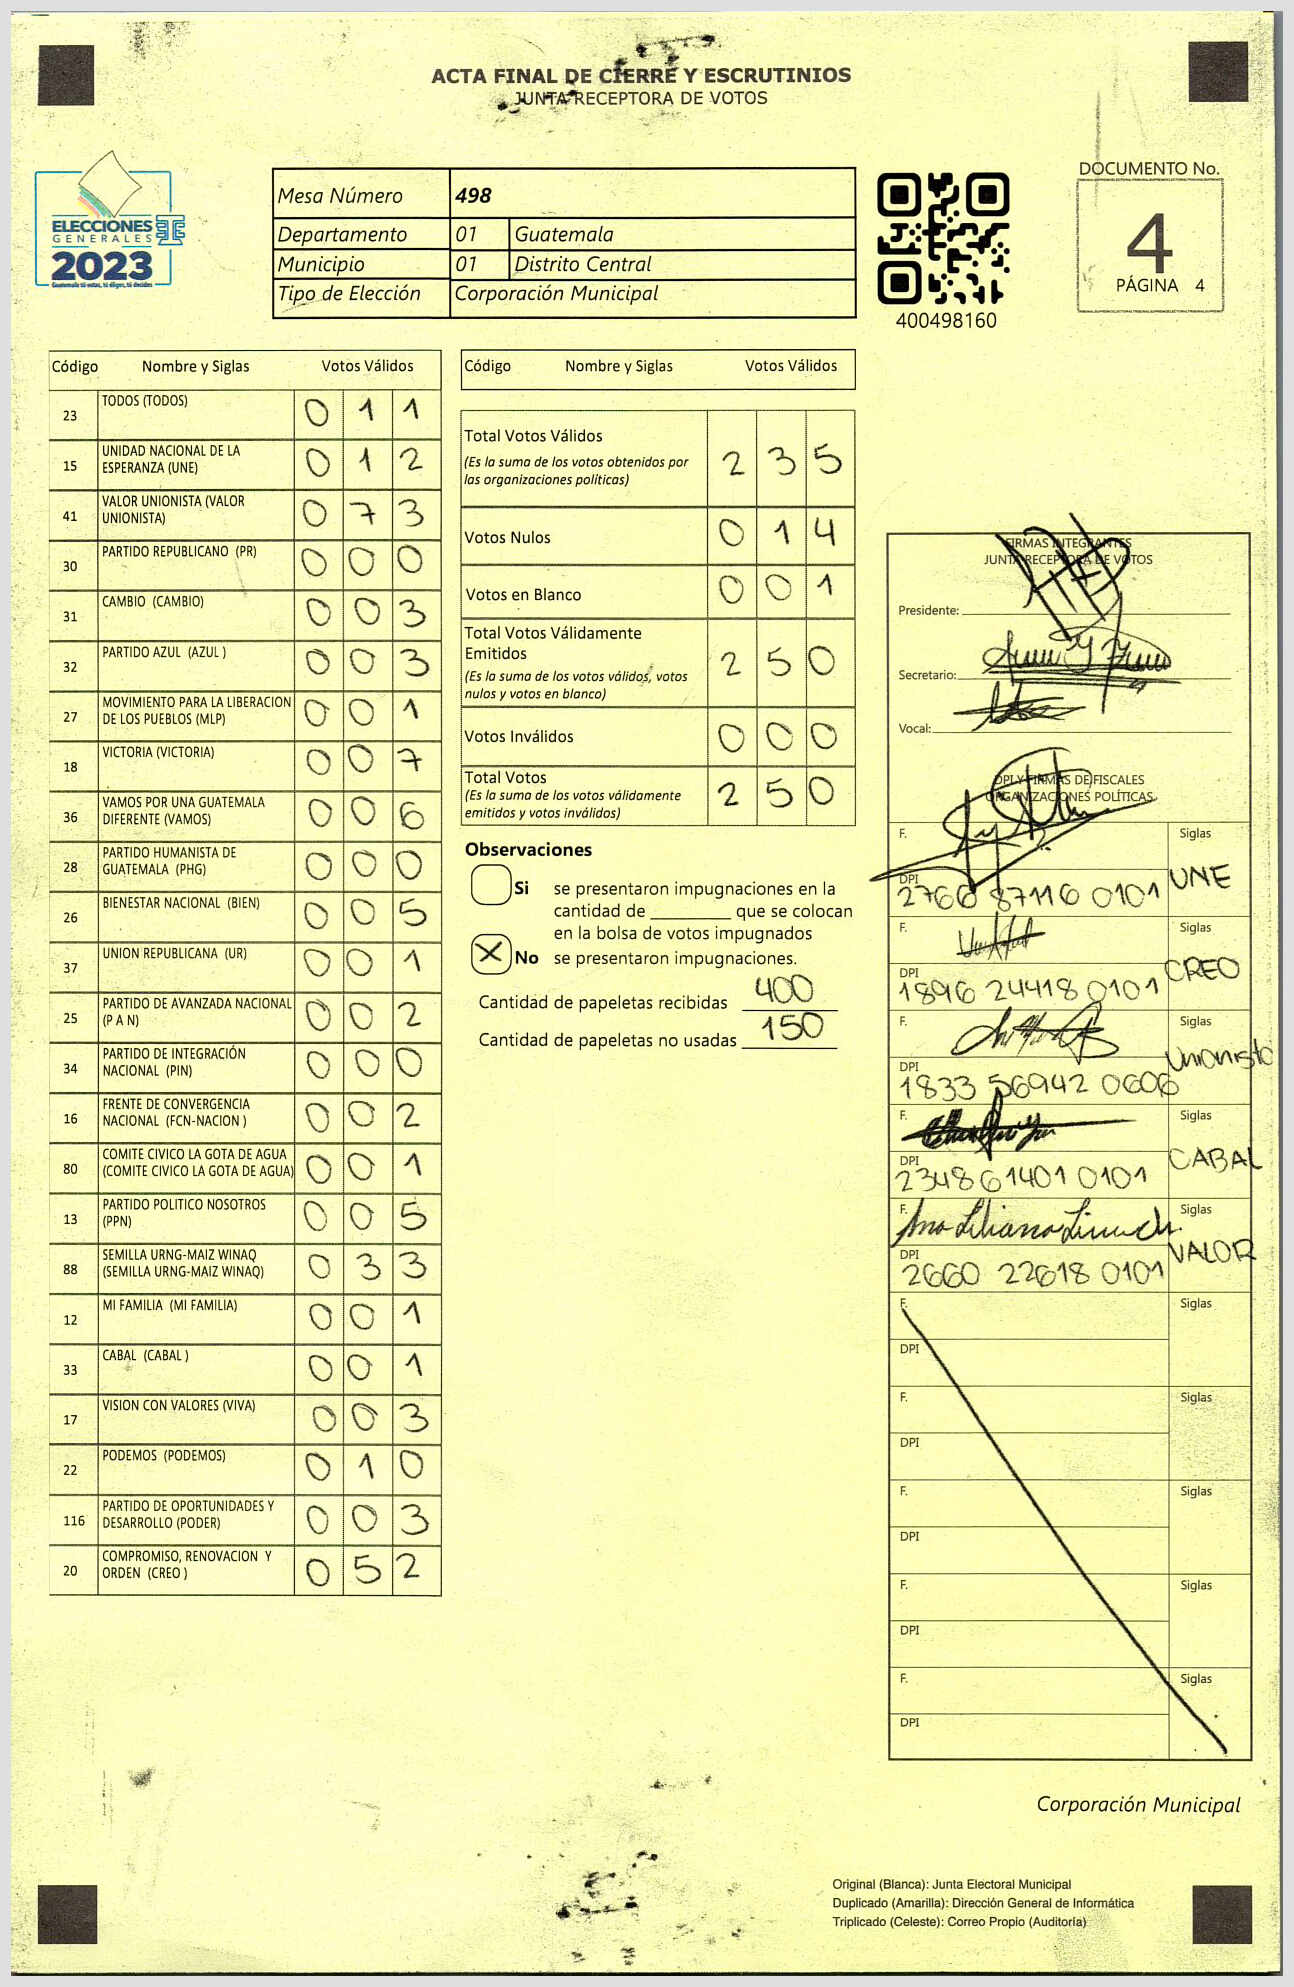 ACTA FINAL DE CIERRE Y ESCRUTINIOS
JUNTA RECEPTORA DE VOTOS
ELECCIONES
GENERALES
2023
Guatemala tú votas, tú eliges, tú decides
Mesa Número 498
Departamento 01 Guatemala
Municipio 01 Distrito Central
Tipo de Elección Corporación Municipal
400498160
DOCUMENTO No.
4
PÁGINA 4
Código Nombre y Siglas Votos Válidos
23 TODOS (TODOS) 0 1 1
15 UNIDAD NACIONAL DE LA
ESPERANZA (UNE) 0 1 2
41 VALOR UNIONISTA (VALOR
UNIONISTA) 0 7 3
30 PARTIDO REPUBLICANO (PR) 0 0 0
31 CAMBIO (CAMBIO) 0 0 3
32 PARTIDO AZUL (AZUL ) 0 0 3
27 MOVIMIENTO PARA LA LIBERACION
DE LOS PUEBLOS (MLP) 0 0 1
18 VICTORIA (VICTORIA) 0 0 7
36 VAMOS POR UNA GUATEMALA
DIFERENTE (VAMOS) 0 0 6
28 PARTIDO HUMANISTA DE
GUATEMALA (PHG) 0 0 0
26 BIENESTAR NACIONAL (BIEN) 0 0 5
37 UNION REPUBLICANA (UR) 0 0 1
25 PARTIDO DE AVANZADA NACIONAL
(P A N) 0 0 2
34 PARTIDO DE INTEGRACIÓN
NACIONAL (PIN) 0 0 0
16 FRENTE DE CONVERGENCIA
NACIONAL (FCN-NACION ) 0 0 2
80 COMITE CIVICO LA GOTA DE AGUA
(COMITE CIVICO LA GOTA DE AGUA) 0 0 1
13 PARTIDO POLITICO NOSOTROS
(PPN) 0 0 5
88 SEMILLA URNG-MAIZ WINAQ
(SEMILLA URNG-MAIZ WINAQ) 0 3 3
12 MI FAMILIA (MI FAMILIA) 0 0 1
33 CABAL (CABAL ) 0 0 1
17 VISION CON VALORES (VIVA) 0 0 3
22 PODEMOS (PODEMOS) 0 1 0
116 PARTIDO DE OPORTUNIDADES Y
DESARROLLO (PODER) 0 0 3
20 COMPROMISO, RENOVACION Y
ORDEN (CREO ) 0 5 2
Código Nombre y Siglas Votos Válidos
Total Votos Válidos
(Es la suma de los votos obtenidos por
las organizaciones políticas) 2 3 5
Votos Nulos 0 1 4
Votos en Blanco 0 0 1
Total Votos Válidamente
Emitidos
(Es la suma de los votos válidos, votos
nulos y votos en blanco) 2 5 0
Votos Inválidos 0 0 0
Total Votos
(Es la suma de los votos válidamente
emitidos y votos inválidos) 2 5 0
Observaciones
Si se presentaron impugnaciones en la
cantidad de ________ que se colocan
en la bolsa de votos impugnados
X No se presentaron impugnaciones.
Cantidad de papeletas recibidas 400
Cantidad de papeletas no usadas 150
FIRMAS INTEGRANTES
JUNTA RECEPTORA DE VOTOS
Presidente:
Secretario:
Vocal:
DPI Y FIRMAS DE FISCALES
ORGANIZACIONES POLÍTICAS
F. Siglas
DPI 2766 87116 0101 UNE
F. Siglas
DPI 1896 24418 0101 CREO
F. Siglas
DPI 1833 56942 0606 Unionista
F. Siglas
DPI 2348 61401 0101 CABAL
F. Siglas
DPI 2660 22618 0101 VALOR
F. Siglas
DPI
F. Siglas
DPI
F. Siglas
DPI
F. Siglas
DPI
F. Siglas
DPI
Corporación Municipal
Original (Blanca): Junta Electoral Municipal
Duplicado (Amarilla): Dirección General de Informática
Triplicado (Celeste): Correo Propio (Auditoría)